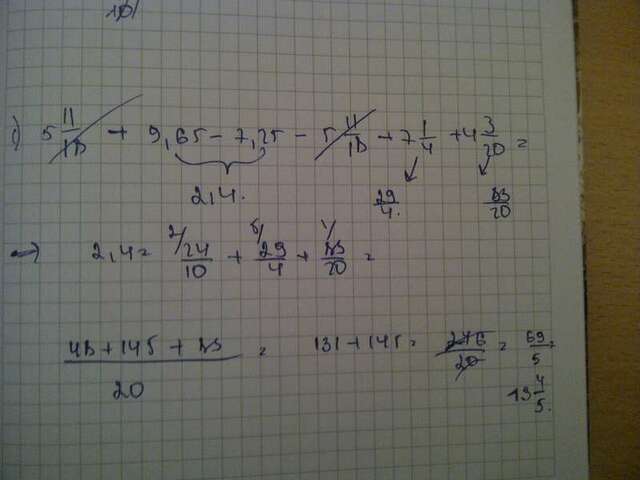 c) 5 11/18 + 9,65 - 7,25 - 5 11/18 + 7 1/4 + 4 3/20 =
2,4. 29/4. 83/20
=> 2,4 = 2/ 24/10 + 5/ 29/4 + 1/ 83/20 =
48 + 145 + 83 / 20 = 131 + 145 = 276/20 = 69/5 =
13 4/5.